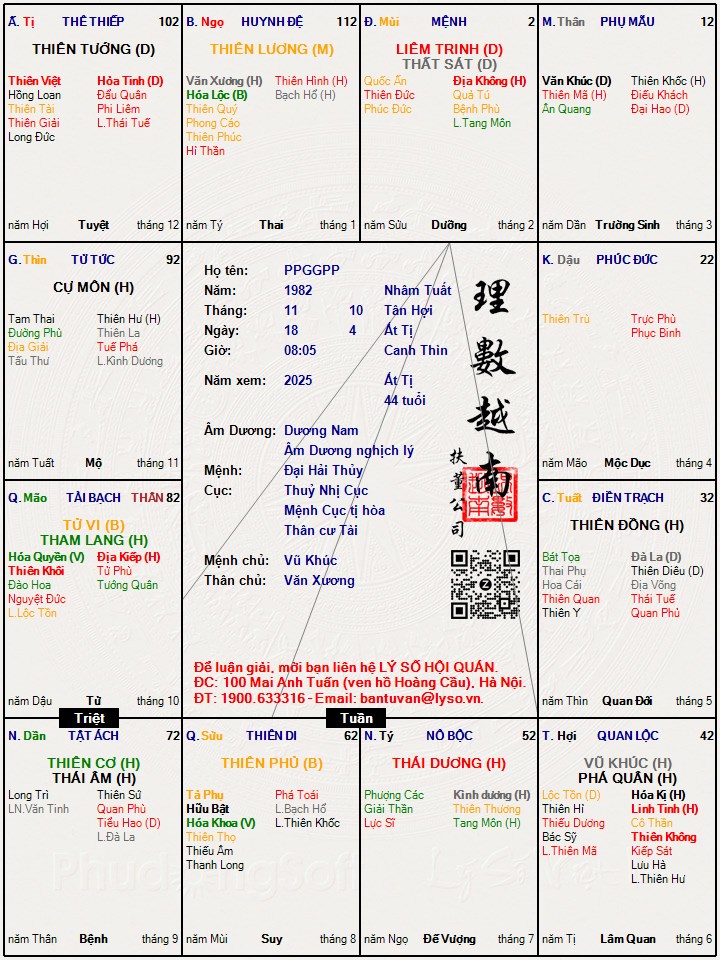 Ấ. Tị THÊ THIẾP 102
THIÊN TƯỚNG (D)
Thiên Việt Hỏa Tinh (D)
Hồng Loan Đẩu Quân
Thiên Tài Phi Liêm
Thiên Giải L.Thái Tuế
Long Đức
năm Hợi Tuyệt tháng 12
B. Ngọ HUYNH ĐỆ 112
THIÊN LƯƠNG (M)
Văn Xương (H) Thiên Hình (H)
Hóa Lộc (B) Bạch Hổ (H)
Thiên Quý
Phong Cáo
Thiên Phúc
Hỉ Thần
năm Tý Thai tháng 1
Đ. Mùi MỆNH 2
LIÊM TRINH (D)
THẤT SÁT (D)
Quốc Ấn Địa Không (H)
Thiên Đức Quả Tú
Phúc Đức Bệnh Phù
L.Tang Môn
năm Sửu Dưỡng tháng 2
M. Thân PHỤ MẪU 12
Văn Khúc (D) Thiên Khốc (H)
Thiên Mã (H) Điếu Khách
Ân Quang Đại Hao (D)
năm Dần Trường Sinh tháng 3
G. Thìn TỬ TỨC 92
CỰ MÔN (H)
Tam Thai Thiên Hư (H)
Đường Phù Thiên La
Địa Giải Tuế Phá
Tấu Thư L.Kình Dương
năm Tuất Mộ tháng 11
Họ tên: PPGGPP
Năm: 1982 Nhâm Tuất
Tháng: 11 10 Tân Hợi
Ngày: 18 4 Ất Tị
Giờ: 08:05 Canh Thìn
Năm xem: 2025 Ất Tị
44 tuổi
Âm Dương: Dương Nam
Âm Dương nghịch lý
Mệnh: Đại Hải Thủy
Cục: Thuỷ Nhị Cục
Mệnh Cục tị hòa
Thân cư Tài
Mệnh chủ: Vũ Khúc
Thân chủ: Văn Xương
理數越南
扶董公司
Để luận giải, mời bạn liên hệ LÝ SỐ HỘI QUÁN.
ĐC: 100 Mai Anh Tuấn (ven hồ Hoàng Cầu), Hà Nội.
ĐT: 1900.633316 - Email: bantuvan@lyso.vn.
K. Dậu PHÚC ĐỨC 22
Thiên Trù Trực Phù
Phục Binh
năm Mão Mộc Dục tháng 4
Q. Mão TÀI BẠCH THÂN 82
TỬ VI (B)
THAM LANG (H)
Hóa Quyền (V) Địa Kiếp (H)
Thiên Khôi Tử Phù
Đào Hoa Tướng Quân
Nguyệt Đức
L.Lộc Tồn
năm Dậu Tử tháng 10
C. Tuất ĐIỀN TRẠCH 32
THIÊN ĐỒNG (H)
Bát Tọa Đà La (D)
Thai Phụ Thiên Diêu (D)
Hoa Cái Địa Võng
Thiên Quan Thái Tuế
Thiên Y Quan Phủ
năm Thìn Quan Đới tháng 5
Triệt
Tuần
N. Dần TẬT ÁCH 72
THIÊN CƠ (H)
THÁI ÂM (H)
Long Trì Thiên Sứ
LN.Văn Tinh Quan Phù
Tiểu Hao (D)
L.Đà La
năm Thân Bệnh tháng 9
Q. Sửu THIÊN DI 62
THIÊN PHỦ (B)
Tả Phụ Phá Toái
Hữu Bật L.Bạch Hổ
Hóa Khoa (V) L.Thiên Khốc
Thiên Thọ
Thiếu Âm
Thanh Long
năm Mùi Suy tháng 8
N. Tý NÔ BỘC 52
THÁI DƯƠNG (H)
Phượng Các Kình dương (H)
Giải Thần Thiên Thương
Lực Sĩ Tang Môn (H)
năm Ngọ Đế Vượng tháng 7
T. Hợi QUAN LỘC 42
VŨ KHÚC (H)
PHÁ QUÂN (H)
Lộc Tồn (D) Hóa Kị (H)
Thiên Hỉ Linh Tinh (H)
Thiếu Dương Cô Thần
Bác Sỹ Thiên Không
L.Thiên Mã Kiếp Sát
Lưu Hà
L.Thiên Hư
năm Tị Lâm Quan tháng 6